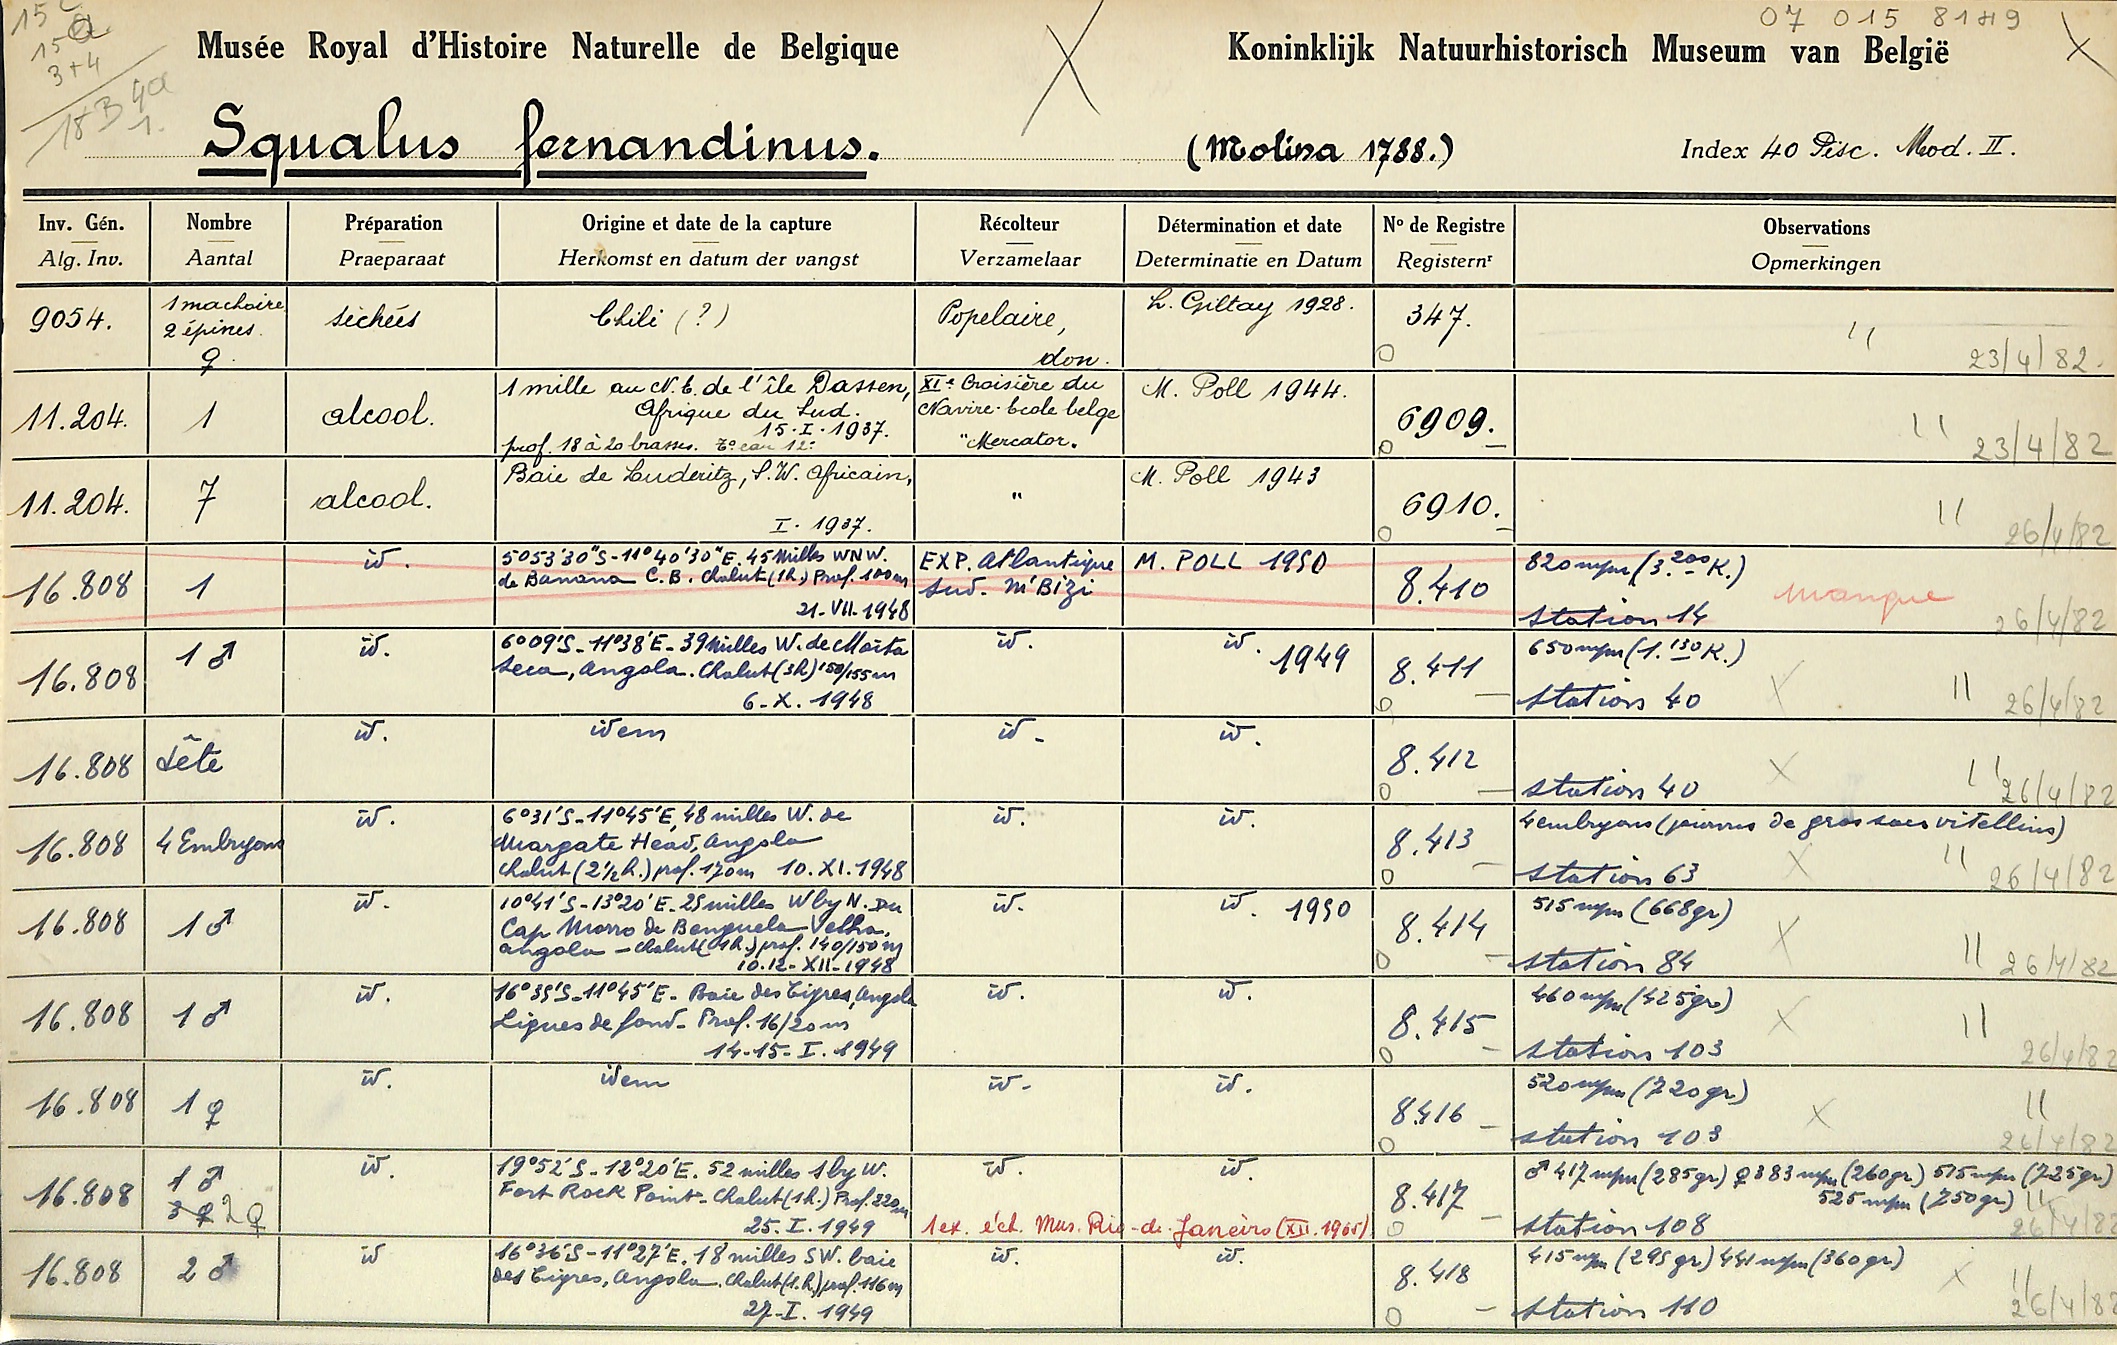 07 015 8189
15 C
15 a
3+4
18B 4a
1.
Musée Royal d'Histoire Naturelle de Belgique
Koninklijk Natuurhistorisch Museum van België
Squalus fernandinus. (Molina 1788.) Index 40 Pisc. Mod. II.
Inv. Gén. Nombre Préparation Origine et date de la capture Récolteur Détermination et date No de Registre Observations
Alg. Inv. Aantal Praeparaat Herkomst en datum der vangst Verzamelaar Determinatie en Datum Registernr Opmerkingen
9054. 1 machoire séchées Chili (?) Popelaire, L. Giltay 1928. 347.
2 épines.
♀. don. 23/4/82.
11.204. 1 alcool. 1 mille au N.E. de l'île Dassen, XIe Croisière du M. Poll 1944. 6909.
Afrique du Sud. Navire-école belge
15.I.1937. "Mercator„
prof. 18 à 20 brasses. To eau 12o 23/4/82
11.204. 7 alcool. Baie de Luderitz, S.W. Africain, " M. Poll 1943 6910.
I. 1937. 26/4/82
16.808 1 id. 5o53'30"S-11o40'30"E. 45 Milles WNW. EXP. Atlantique M. POLL 1950 8.410 820 mm (3.200 K.)
de Banana C.B. Chalut (1h.) Prof. 100m Sud. M'Bizi manque
21-VII-1948 Station 14 26/4/82
16.808 1 ♂ id. 6o09'S-11o38'E-39 Milles W. de Moita id. id. 1949 8.411 650 mm (1.130 K.)
Seca, Angola. Chalut (3h) 150/155m
6-X.1948 Station 40 X 26/4/82
16.808 tête id. idem id- id. 8.412
Station 40 X 26/4/82
16.808 4 Embryons id. 6o31'S-11o45'E, 48 milles W. de id. id. 8.413 4 embryons (pourvus de gros sacs vitellins)
Margate Head, Angola
Chalut (2½h.) prof. 170m 10.XI.1948 Station 63 X 26/4/82
16.808 1 ♂ id. 10o41'S-13o20'E-25 milles W by N. du id. id. 1950 8.414 515 mm (668gr)
Cap Morro de Benguela Velha,
Angola - Chalut (1h.) prof. 140/150m
10.12-XII-1948 Station 84 X 26/4/82
16.808 1 ♂ id. 16o35'S-11o45'E- Baie des Tigres, Angola id. id. 8.415 460 mm (425gr)
Lignes de fond- Prof. 16/20m
14-15-I.1949 Station 103 X 26/4/82
16.808 1 ♀ id. idem id- id. 8.416 520 mm (720gr)
Station 103 X 26/4/82
16.808 1 ♂ id. 19o52'S-12o20'E. 52 milles S by W. id. id. 8.417 ♂ 417 mm (285gr) ♀ 383 mm (260gr) 515 mm (725gr)
3 ♀ 2 ♀ Fort Rock Point- Chalut (1h.) Prof. 220m 525 mm (750gr)
25.I.1949 1 ex. éch. Mus. Rio-de-Janeiro (XII.1965) Station 108 26/4/82
16.808 2 ♂ id 16o36'S-11o27'E. 18 milles SW. baie id. id. 8.418 415 mm (295gr) 441 mm (360gr)
des Tigres, Angola. Chalut (1h.) prof. 116m
27-I.1949 Station 110 X 26/4/82